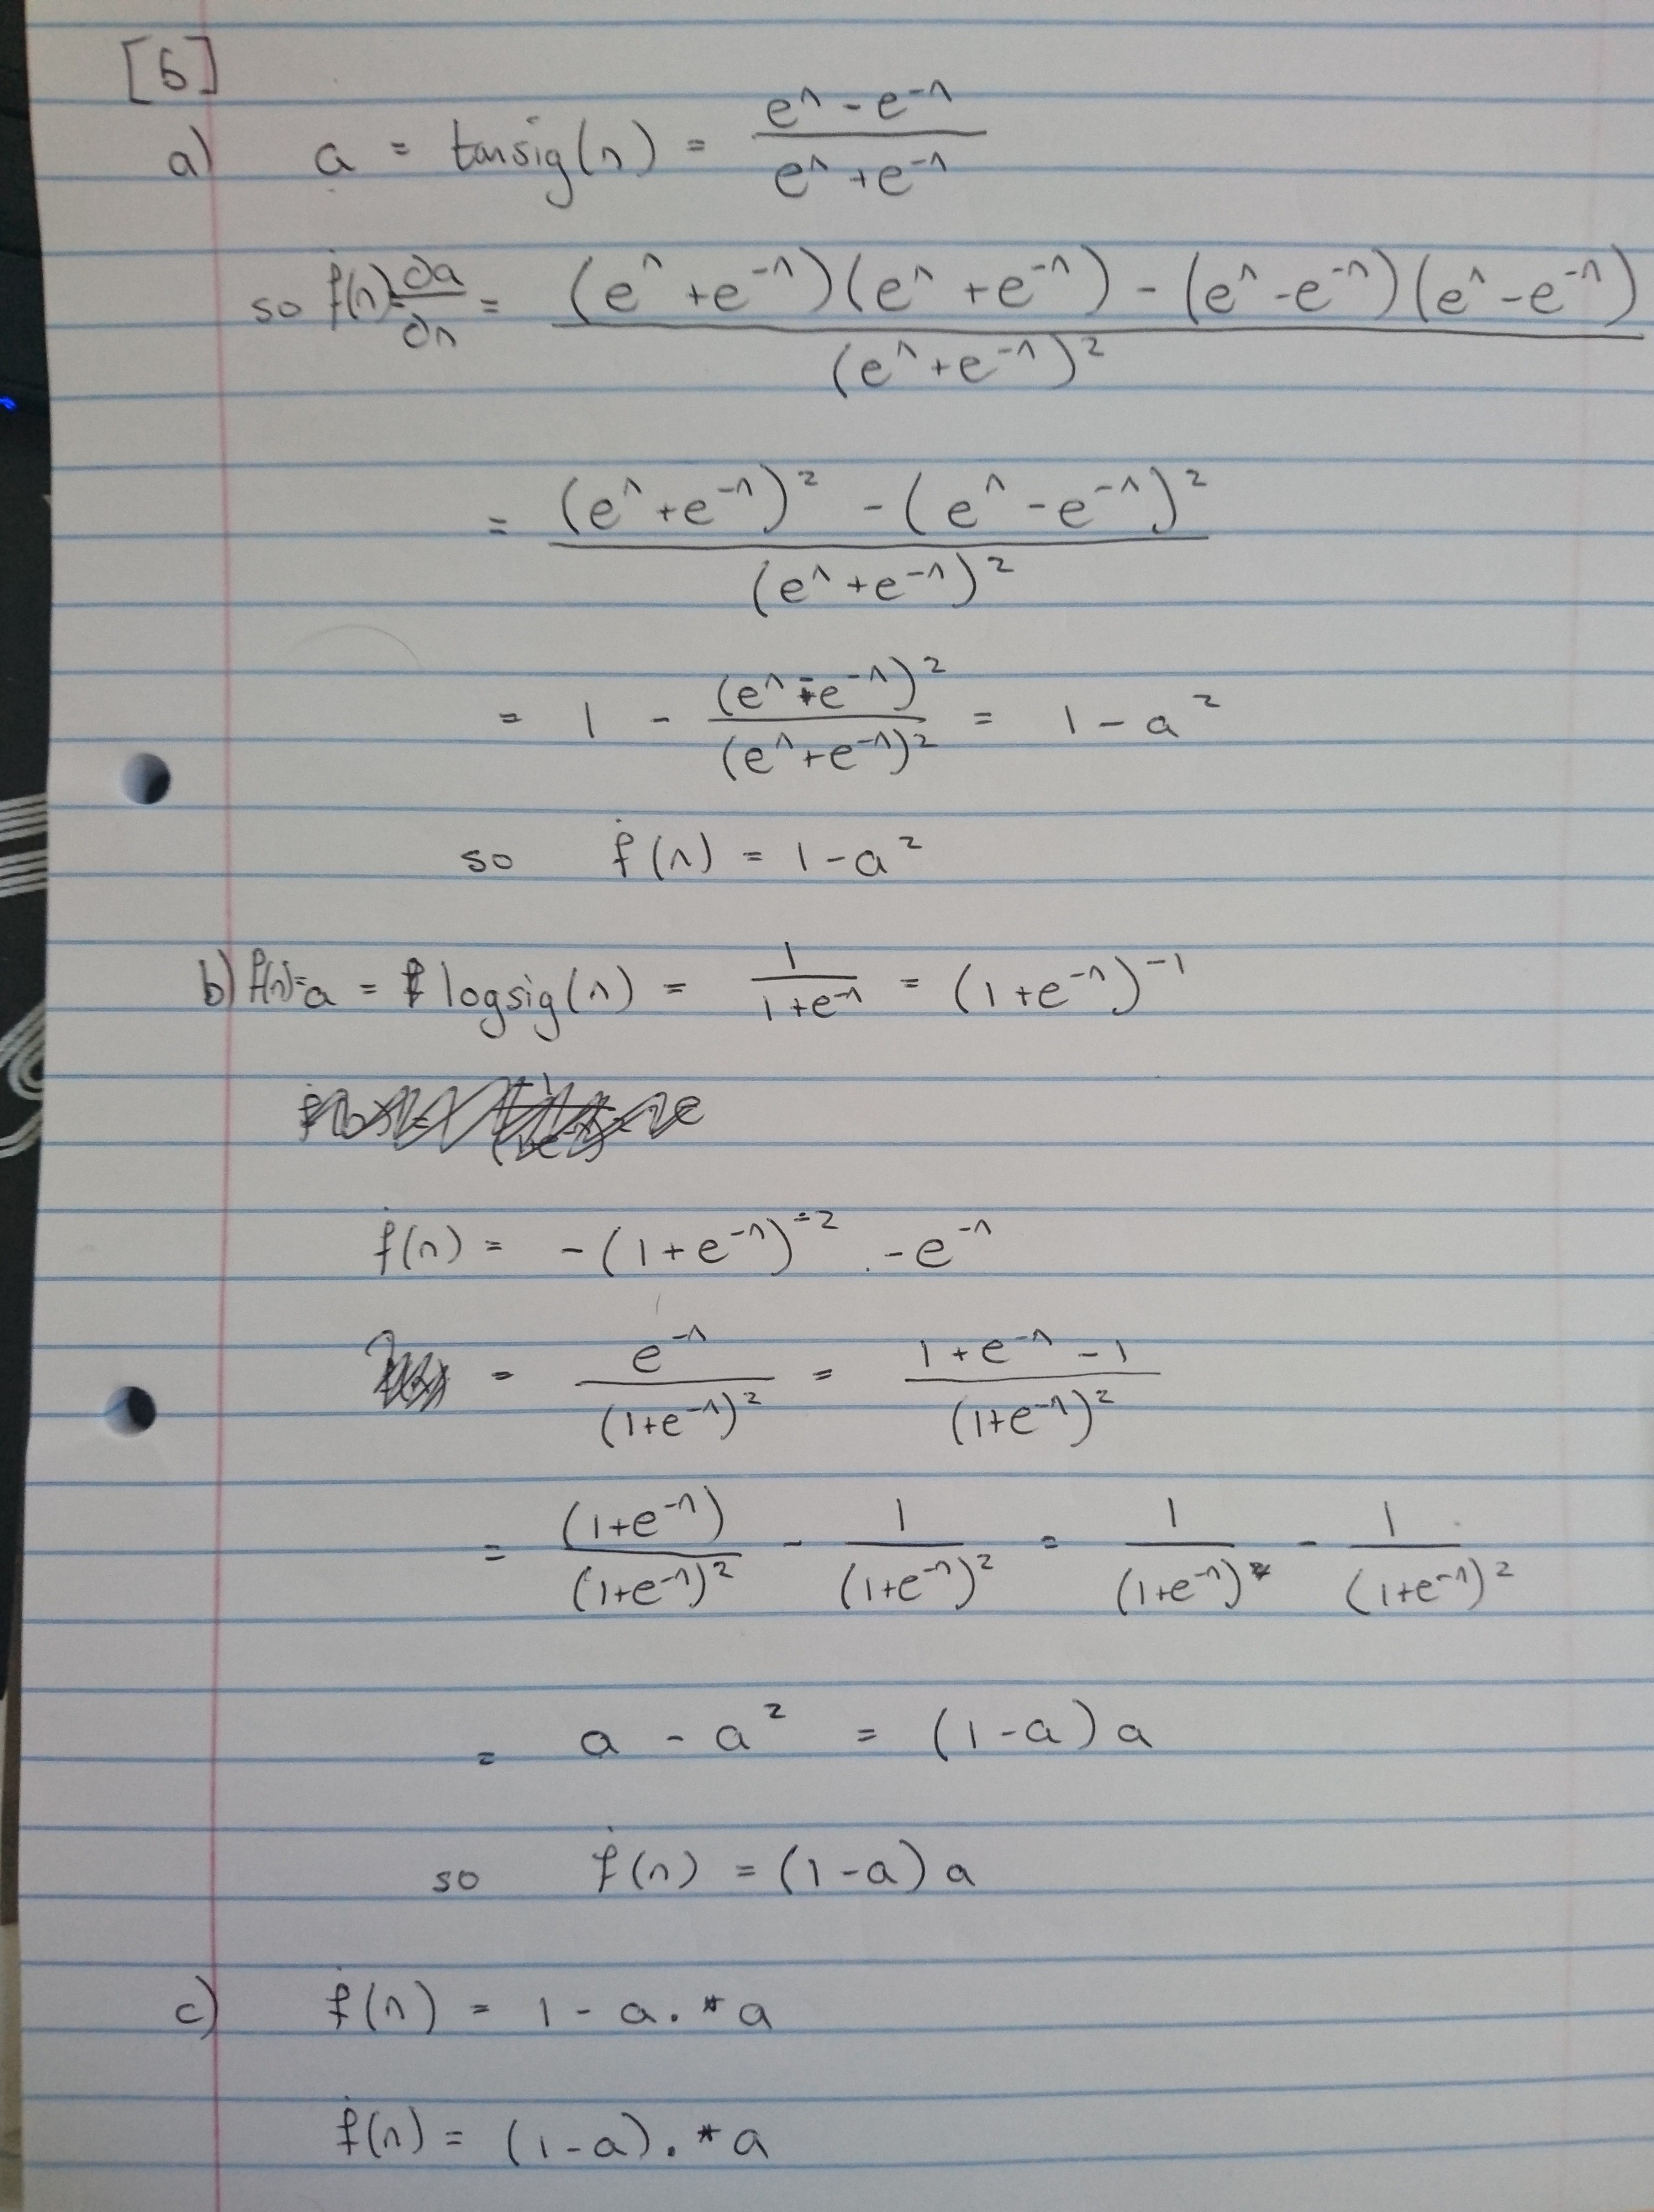 [6]
a) a = tansig(n) = \frac{e^n - e^{-n}}{e^n + e^{-n}}
so \dot{f}(n) = \frac{∂a}{∂n} = \frac{(e^n + e^{-n})(e^n + e^{-n}) - (e^n - e^{-n})(e^n - e^{-n})}{(e^n + e^{-n})^2}
= \frac{(e^n + e^{-n})^2 - (e^n - e^{-n})^2}{(e^n + e^{-n})^2}
= 1 - \frac{(e^n - e^{-n})^2}{(e^n + e^{-n})^2} = 1 - a^2
so \dot{f}(n) = 1 - a^2
b) f(n) = a = logsig(n) = \frac{1}{1 + e^{-n}} = (1 + e^{-n})^{-1}
\dot{f}(n) = -(1 + e^{-n})^{-2} . -e^{-n}
= \frac{e^{-n}}{(1 + e^{-n})^2} = \frac{1 + e^{-n} - 1}{(1 + e^{-n})^2}
= \frac{(1 + e^{-n})}{(1 + e^{-n})^2} - \frac{1}{(1 + e^{-n})^2} = \frac{1}{(1 + e^{-n})} - \frac{1}{(1 + e^{-n})^2}
= a - a^2 = (1 - a) a
so \dot{f}(n) = (1 - a) a
c) \dot{f}(n) = 1 - a .* a
\dot{f}(n) = (1 - a) .* a